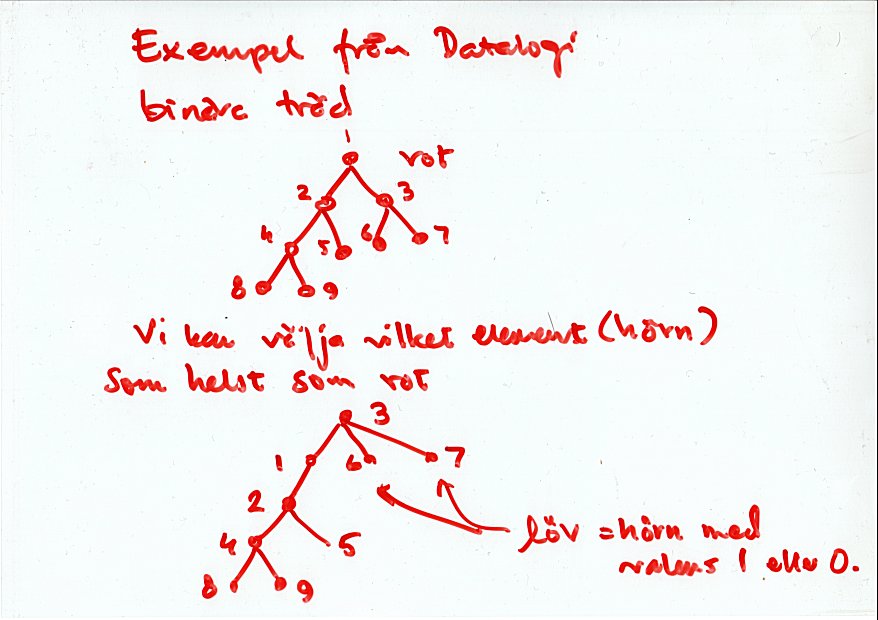 Exempel från Datalogi
binära träd
1
rot
2 3
4 5 6 7
8 9
Vi kan välja vilket element (hörn)
som helst som rot
3
1 6 7
2
4 5
löv = hörn med
8 9
valens 1 eller 0.